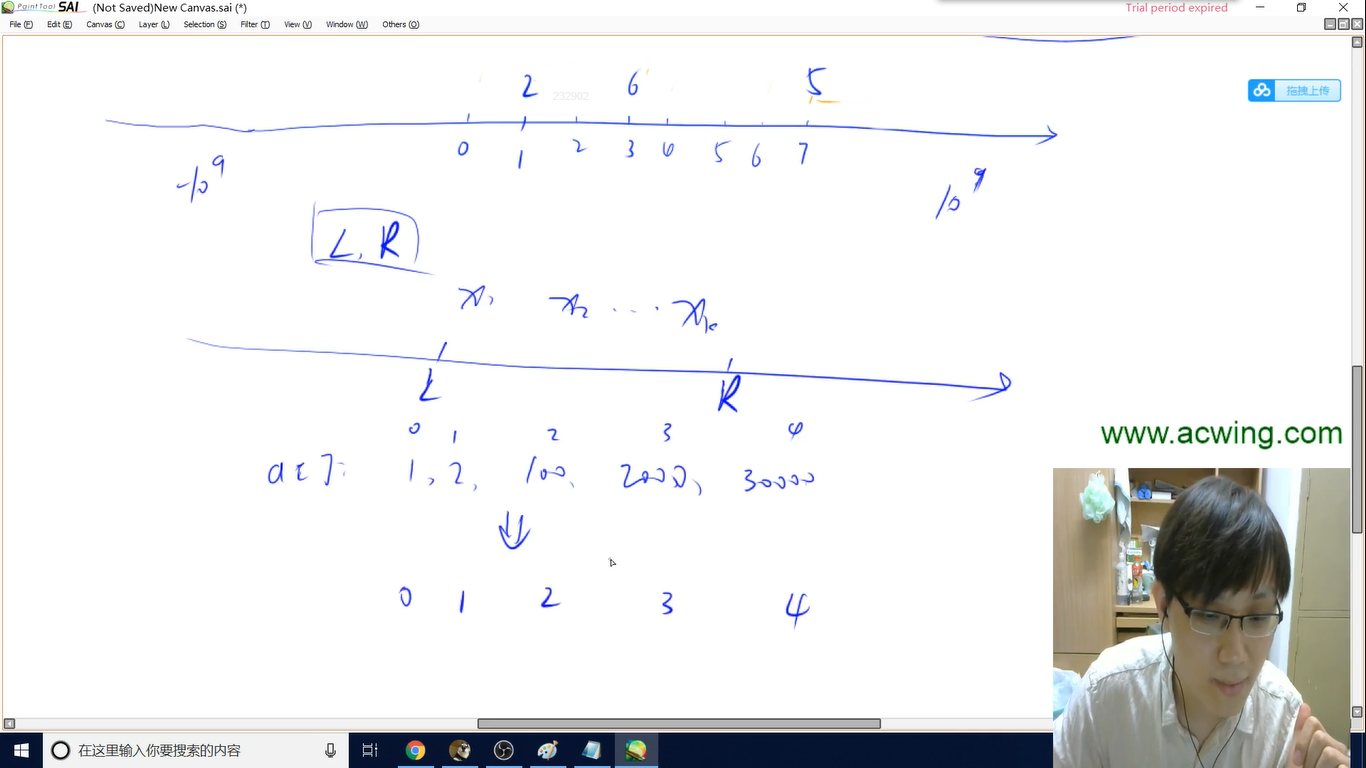 PaintTool SAI (Not Saved)New Canvas.sai (*)
Trial period expired
File (F) Edit (E) Canvas (C) Layer (L) Selection (S) Filter (T) View (V) Window (W) Others (O)
2 6 5
232902
拖拽上传
0 1 2 3 4 5 6 7
-10⁹ 10⁹
L, R
x₁ x₂ ... xₖ
L R
0 1 2 3 4
a[]: 1, 2, 100, 2000, 30000
www.acwing.com
⇓
0 1 2 3 4
在这里输入你要搜索的内容